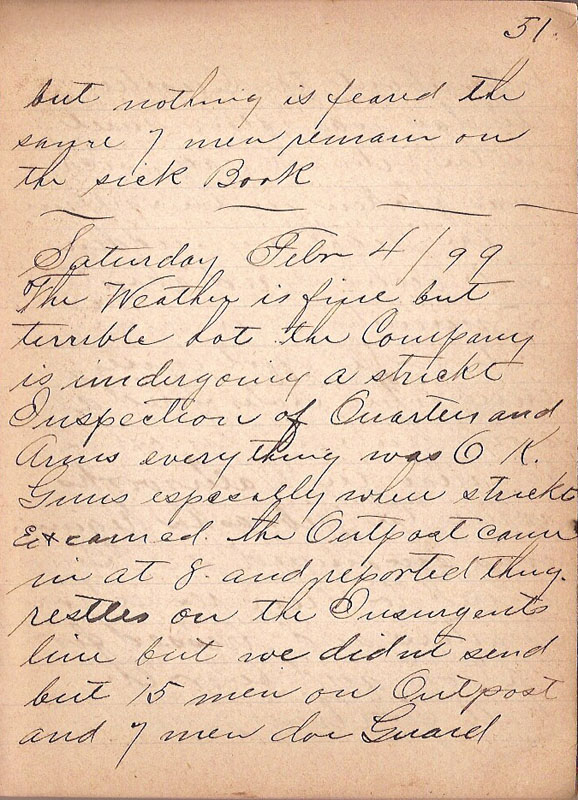 51.
but nothing is feared the
same 7 men remain on
the sick Book
Saturday Febr 4/99
The Weather is fine but
terrible hot the Company
is undergoing a strickt
Inspection of Quarters and
Arms everything was O K.
Guns espesally when strickt
Excamed. the Outpost came
in at 8. and reported thing.
restles on the Insurgents
line but we didnt send
but 15 men on Outpost
and 7 men doe Guard